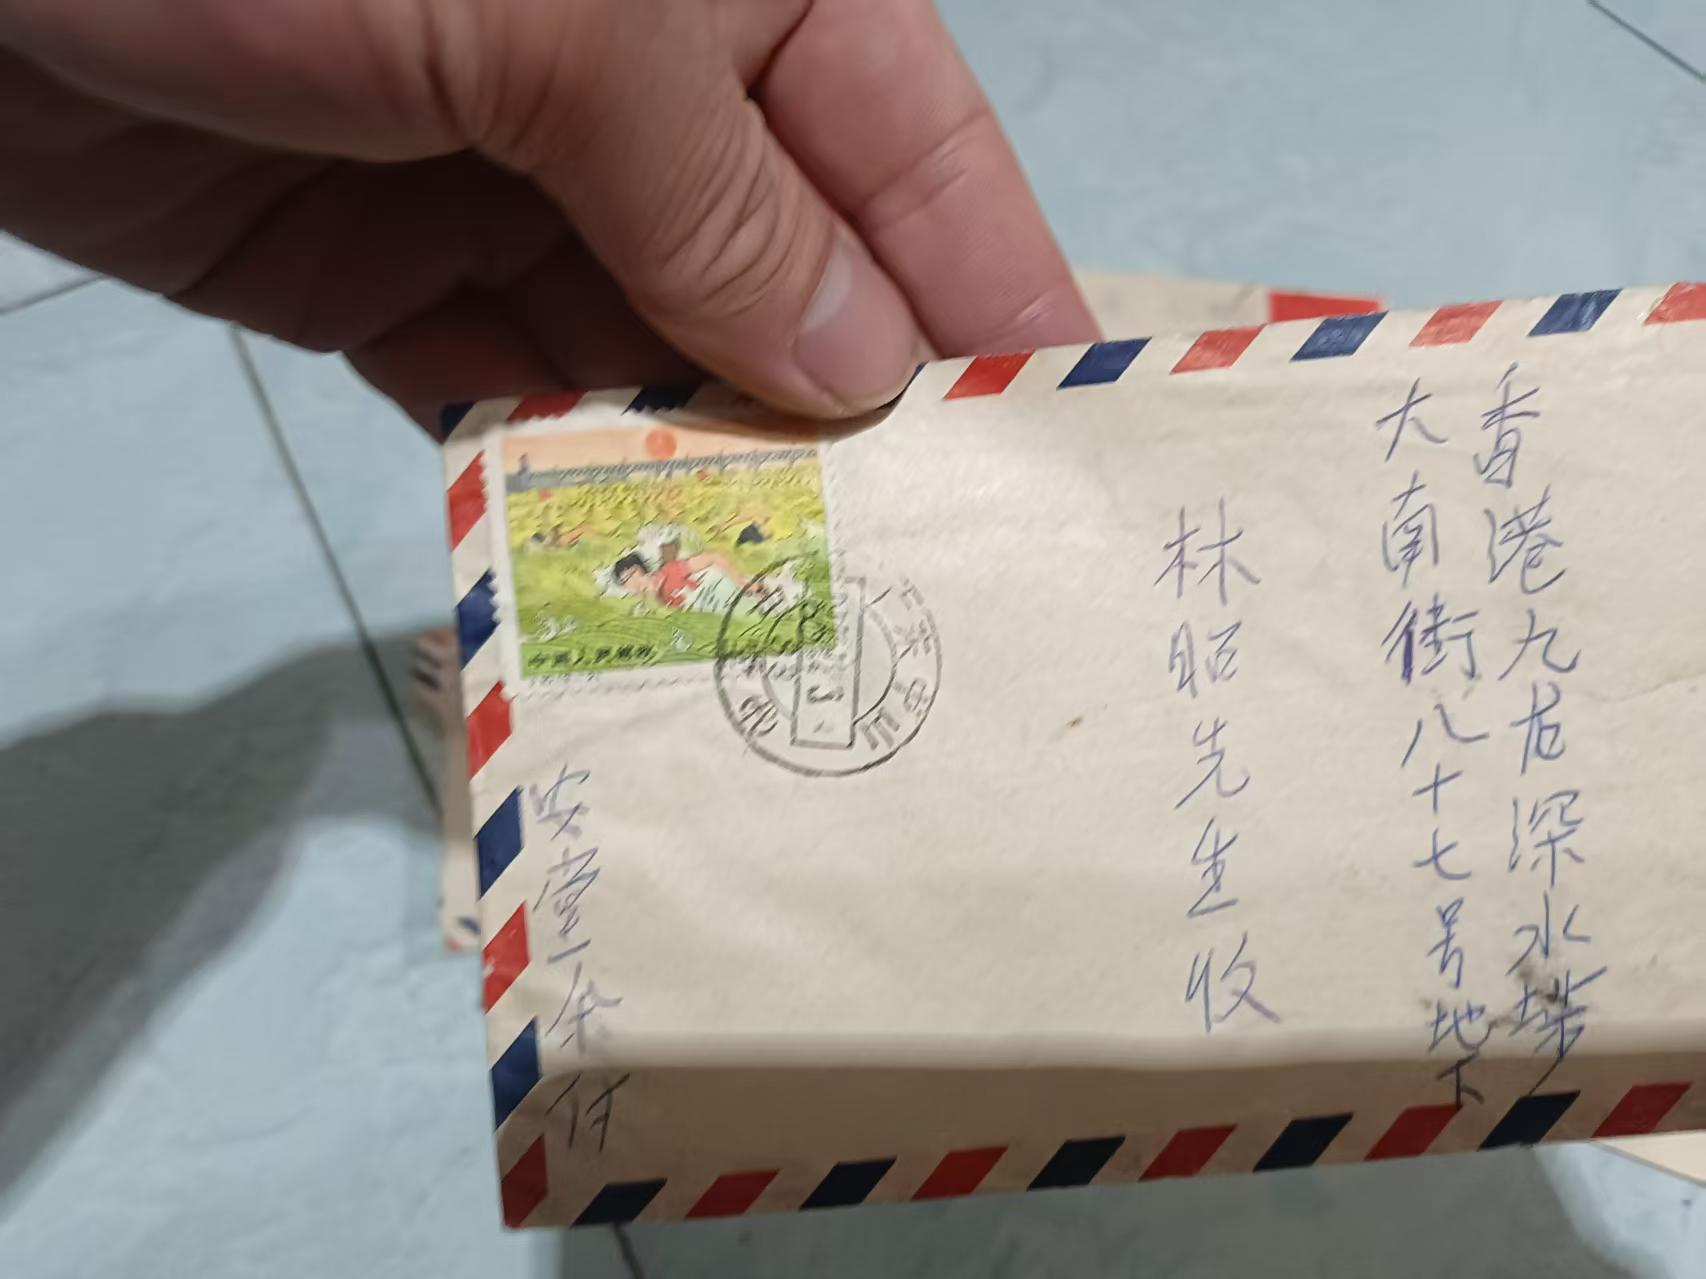 香港九龙深水埗
大南街八十七号地下
林昭先生收
安堂余付
中国人民邮政